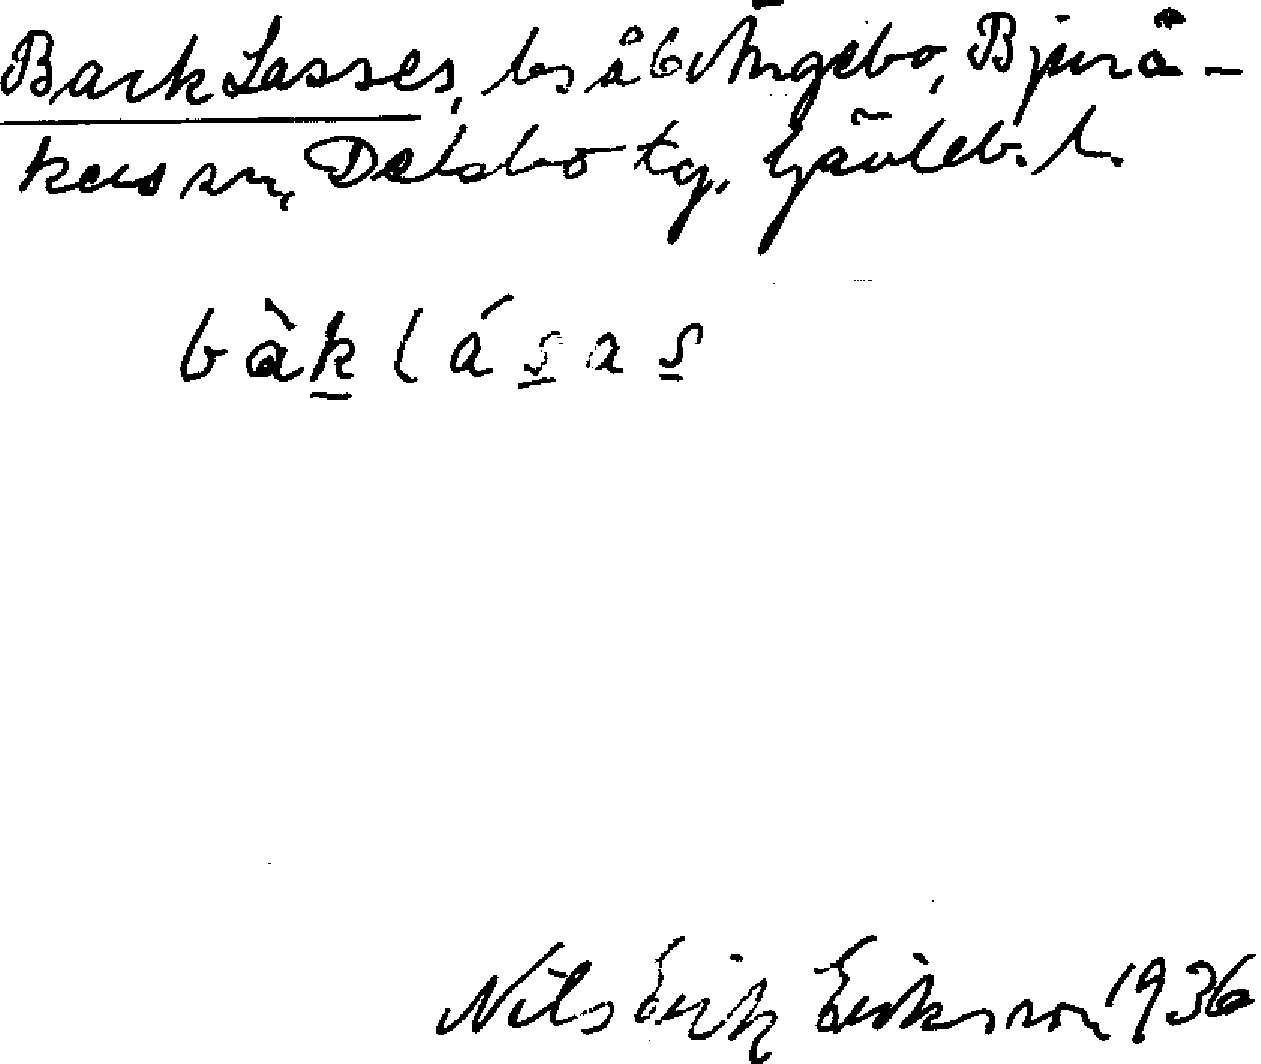 Back Lasses, bs å 6 Ängebo, Bjurå-
kers sn, Delsbo tg, Gävleb. l.
bàk lásas
Nils Erik Eriksson 1936